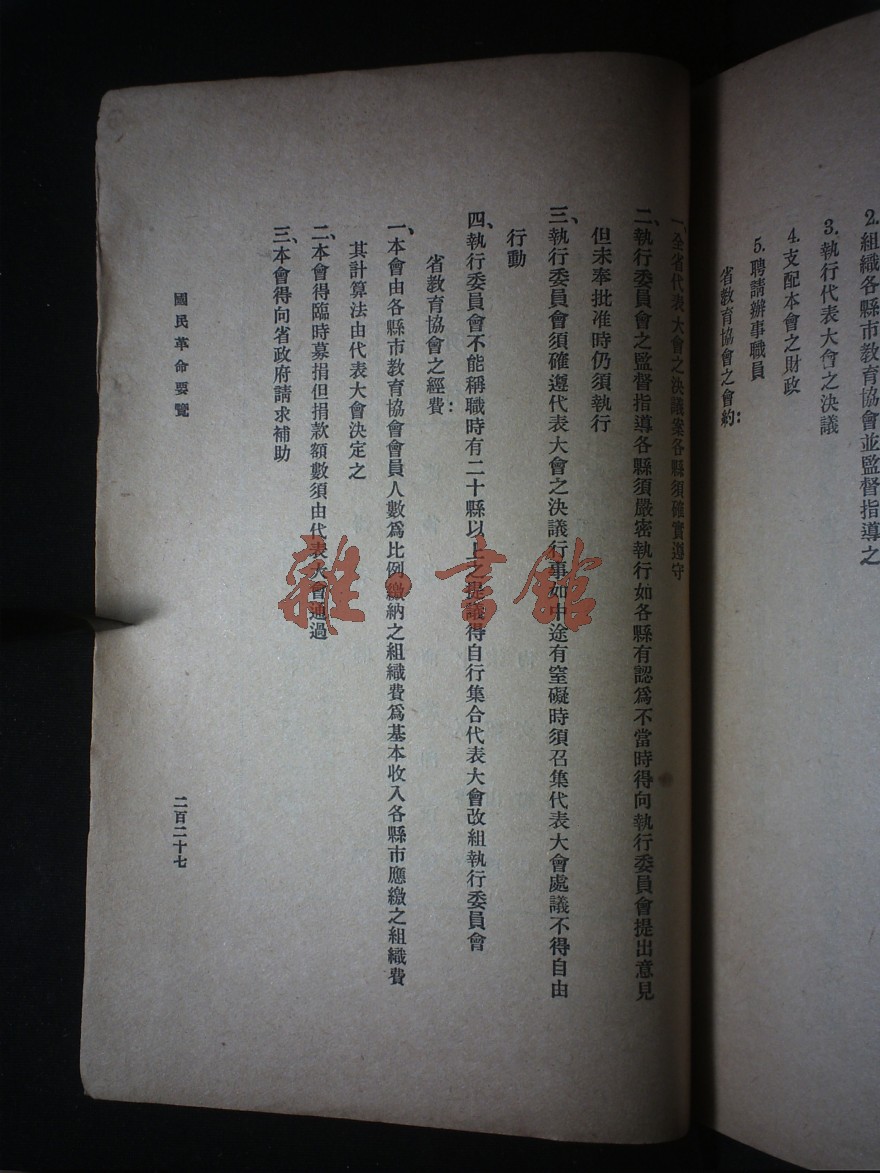 2.組織各縣市教育協會並監督指導之
3.執行代表大會之決議
4.支配本會之財政
5.聘請辦事職員
省教育協會之會約：
一、全省代表大會之決議案各縣須確實遵守
二、執行委員會之監督指導各縣須嚴密執行如各縣有認爲不當時得向執行委員會提出意見
但未奉批准時仍須執行
三、執行委員會須確遵代表大會之決議行事如中途有窒礙時須召集代表大會處議不得自由
行動
四、執行委員會不能稱職時有二十縣以上之提議得自行集合代表大會改組執行委員會
省教育協會之經費：
一、本會由各縣市教育協會會員人數爲比例繳納之組織費爲基本收入各縣市應繳之組織費
其計算法由代表大會決定之
二、本會得臨時募捐但捐款額數須由代表大會通過
三、本會得向省政府請求補助
國民革命要覽
二百二十七
雜·書館